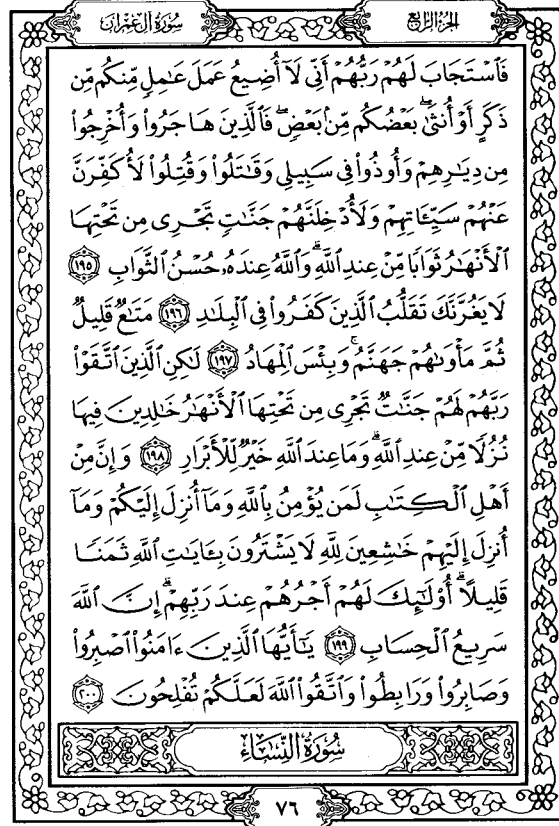 الجزء الرابع
سورة آل عمران
فَٱسْتَجَابَ لَهُمْ رَبُّهُمْ أَنِّى لَآ أُضِيعُ عَمَلَ عَٰمِلٍ مِّنكُم مِّن
ذَكَرٍ أَوْ أُنثَىٰۖ بَعْضُكُم مِّنۢ بَعْضٍۖ فَٱلَّذِينَ هَاجَرُوا۟ وَأُخْرِجُوا۟
مِن دِيَٰرِهِمْ وَأُوذُوا۟ فِى سَبِيلِى وَقَٰتَلُوا۟ وَقُتِلُوا۟ لَأُكَفِّرَنَّ
عَنْهُمْ سَيِّـَٔاتِهِمْ وَلَأُدْخِلَنَّهُمْ جَنَّٰتٍ تَجْرِى مِن تَحْتِهَا
ٱلْأَنْهَٰرُ ثَوَابًا مِّنْ عِندِ ٱللَّهِۗ وَٱللَّهُ عِندَهُۥ حُسْنُ ٱلثَّوَابِ ١٩٥
لَا يَغُرَّنَّكَ تَقَلُّبُ ٱلَّذِينَ كَفَرُوا۟ فِى ٱلْبِلَٰدِ ١٩٦ مَتَٰعٌ قَلِيلٌ
ثُمَّ مَأْوَىٰهُمْ جَهَنَّمُۚ وَبِئْسَ ٱلْمِهَادُ ١٩٧ لَٰكِنِ ٱلَّذِينَ ٱتَّقَوْا۟
رَبَّهُمْ لَهُمْ جَنَّٰتٌ تَجْرِى مِن تَحْتِهَا ٱلْأَنْهَٰرُ خَٰلِدِينَ فِيهَا
نُزُلًا مِّنْ عِندِ ٱللَّهِۗ وَمَا عِندَ ٱللَّهِ خَيْرٌ لِّلْأَبْرَارِ ١٩٨ وَإِنَّ مِنْ
أَهْلِ ٱلْكِتَٰبِ لَمَن يُؤْمِنُ بِٱللَّهِ وَمَآ أُنزِلَ إِلَيْكُمْ وَمَآ
أُنزِلَ إِلَيْهِمْ خَٰشِعِينَ لِلَّهِ لَا يَشْتَرُونَ بِـَٔايَٰتِ ٱللَّهِ ثَمَنًا
قَلِيلًاۗ أُو۟لَٰٓئِكَ لَهُمْ أَجْرُهُمْ عِندَ رَبِّهِمْۗ إِنَّ ٱللَّهَ
سَرِيعُ ٱلْحِسَابِ ١٩٩ يَٰٓأَيُّهَا ٱلَّذِينَ ءَامَنُوا۟ ٱصْبِرُوا۟
وَصَابِرُوا۟ وَرَابِطُوا۟ وَٱتَّقُوا۟ ٱللَّهَ لَعَلَّكُمْ تُفْلِحُونَ ٢٠٠
سُورَةُ النِّسَاءِ
٧٦